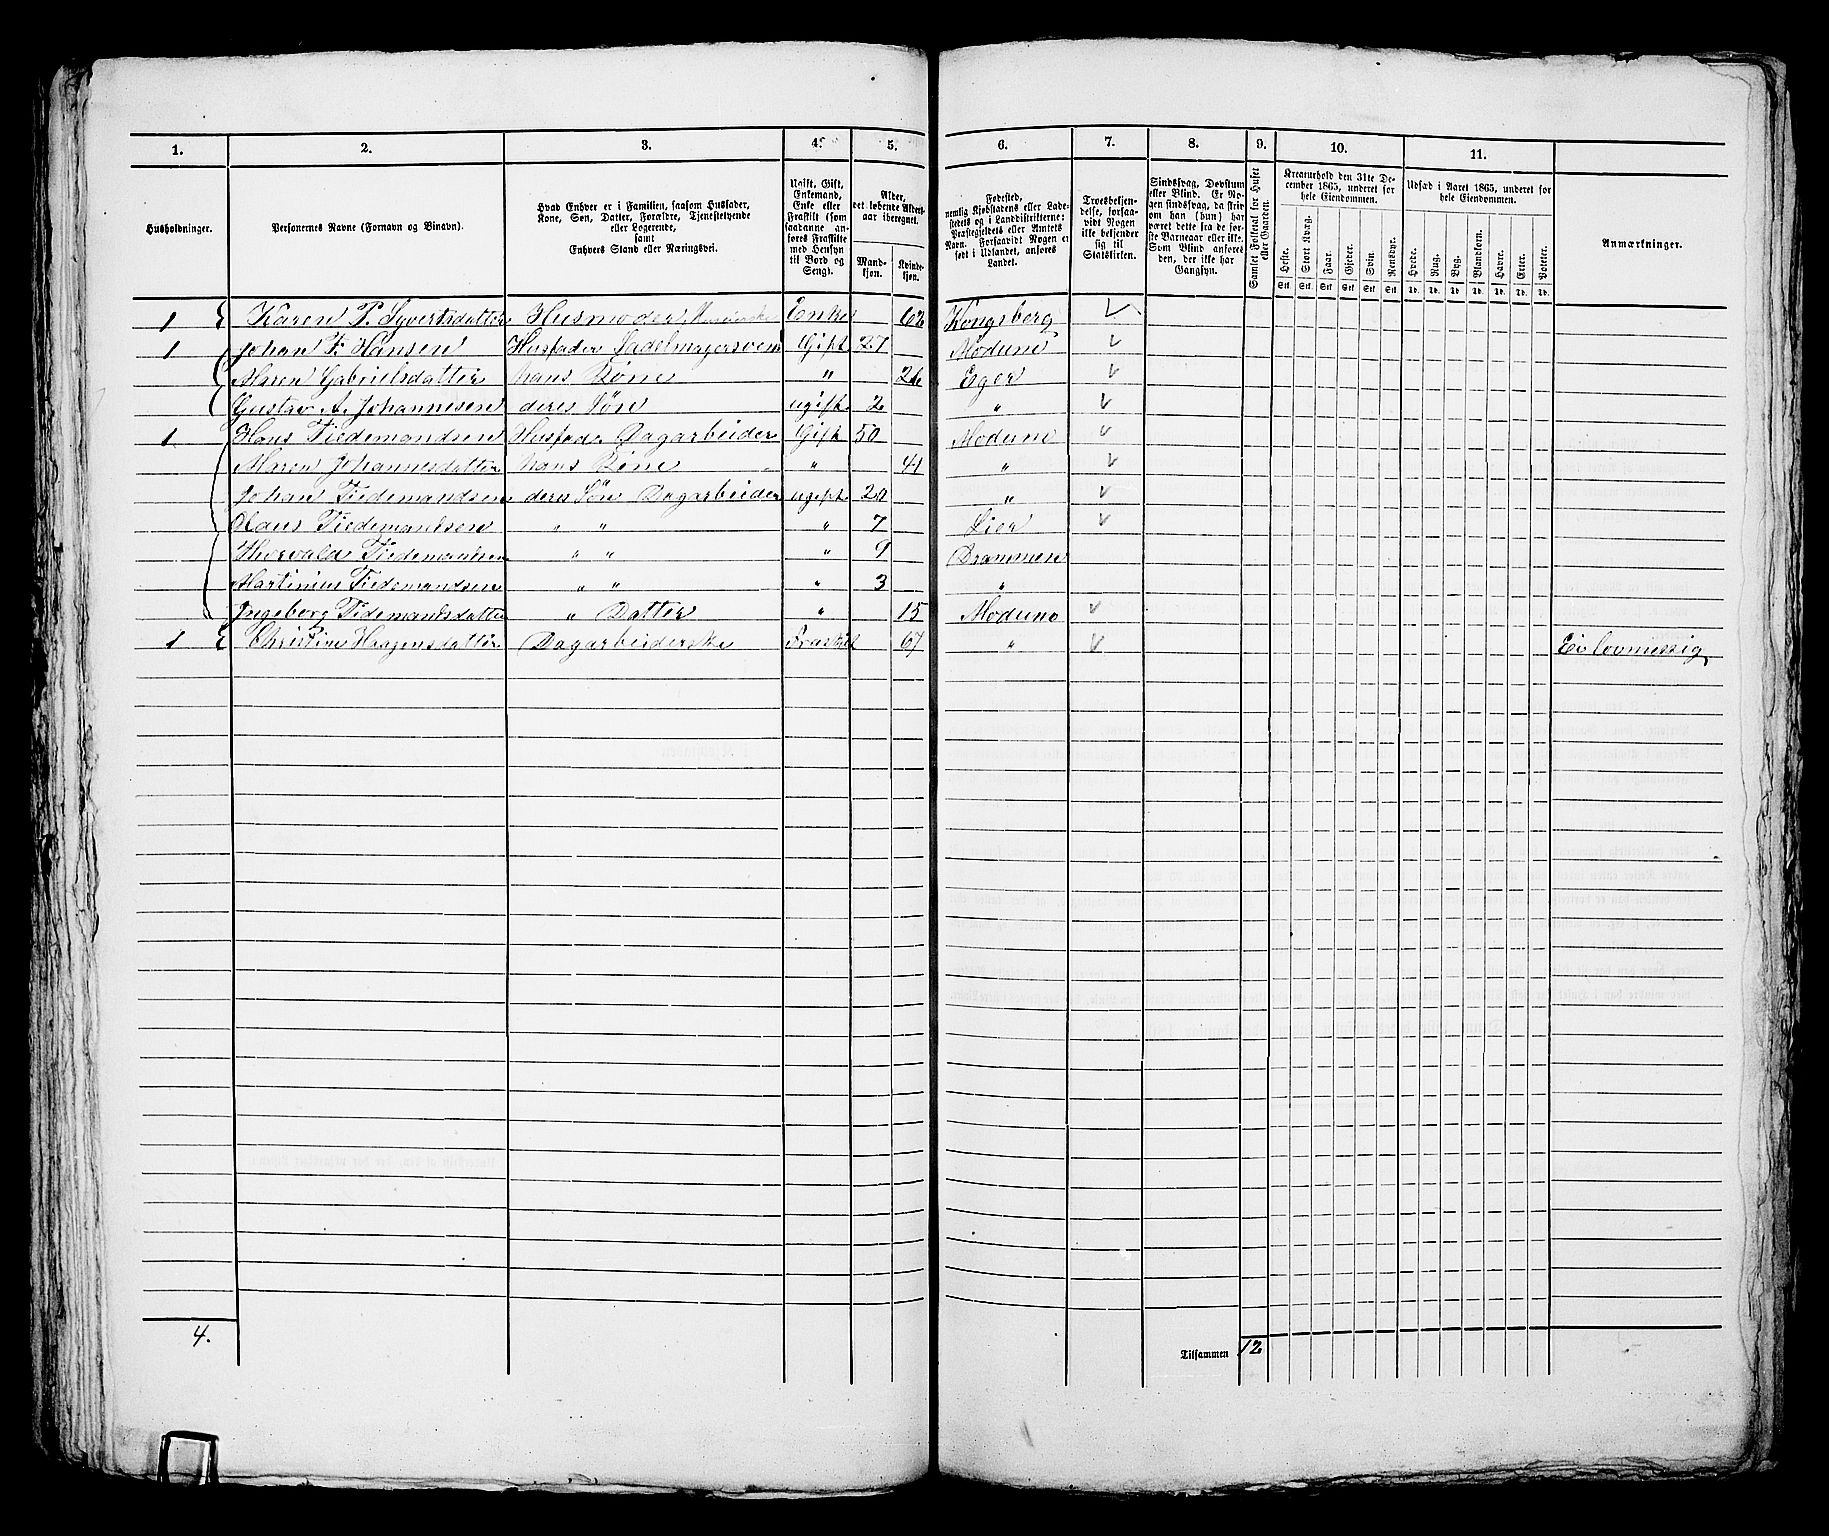 1. 2. 3. 4. 5. 6. 7. 8. 9. 10. 11.
Husholdninger.
Personernes Navne (Fornavn og Binavn).
Hvad Enhver er i Familien, saasom Husfader,
Kone, Søn, Datter, Forældre, Tjenestetyende
eller Logerende,
samt
Enhvers Stand eller Næringsvei.
Ugift, Gift,
Enkemand,
Enke eller
Fraskilt (som
saadanne an-
føres Fraskilte
med Hensyn
til Bord og
Seng).
Alder,
det løbende Alders-
aar iberegnet.
Mand-
kjøn.
Kvinde-
kjøn.
Fødested,
nemlig Kjøbstadens eller Lade-
stedets og i Landdistrikterne:
Præstegjeldets eller Amtets
Navn. Forsaavidt Nogen er
født i Udlandet, anføres
Landet.
Troesbekjen-
delse, forsaa-
vidt Nogen
ikke bekjender
sig til
Statskirken.
Sindssvag, Døvstum
eller Blind. Er No-
gen sindssvag, da hvor-
om han (hun) har
været dette fra de før-
ste Barneaar eller ikke.
Som Blind anføres
den, der ikke har
Gangsyn.
Samlet Folketal for Huset
eller Gaarden.
Kreaturhold den 31te De-
cember 1865, underet for
hele Eiendommen.
Heste. Stort Kvæg. Faar. Gjeder. Svin. Rensdyr.
Stk. Stk. Stk. Stk. Stk. Stk.
Udsæd i Aaret 1865, underet for
hele Eiendommen.
Hvede. Rug. Byg. Blandkorn. Havre. Erter. Poteter.
Td. Td. Td. Td. Td. Td. Td.
Anmærkninger.
1 { Karen P. Syvertsdatter Husmoder Enke 62 Kongsberg
1 Johan F. Hansen Husfader Sadelmagersvend Gift 27 Modum
Maren Gabrielsdatter hans Kone " 26 Eger
Gustav A. Johannesen deres Søn ugift 2 "
1 Hans Tiedemandsen Husfader Dagarbeider Gift 50 Modum
Maren Johannesdatter hans Kone " 41 "
Johan Tiedemandsen deres Søn Dagarbeider ugift 20 "
Claus Tiedemandsen " " " 7 Lier
Thorvald Tiedemandsen " " " 9 Drammen
Martinius Tiedemandsen " " " 3 "
Ingeborg Tidemandsdatter " Datter " 15 Modum
1 { Christine Haagensdatter Dagarbeiderske Fraskilt 67 " Ei lovmessig
4.
Tilsammen 12